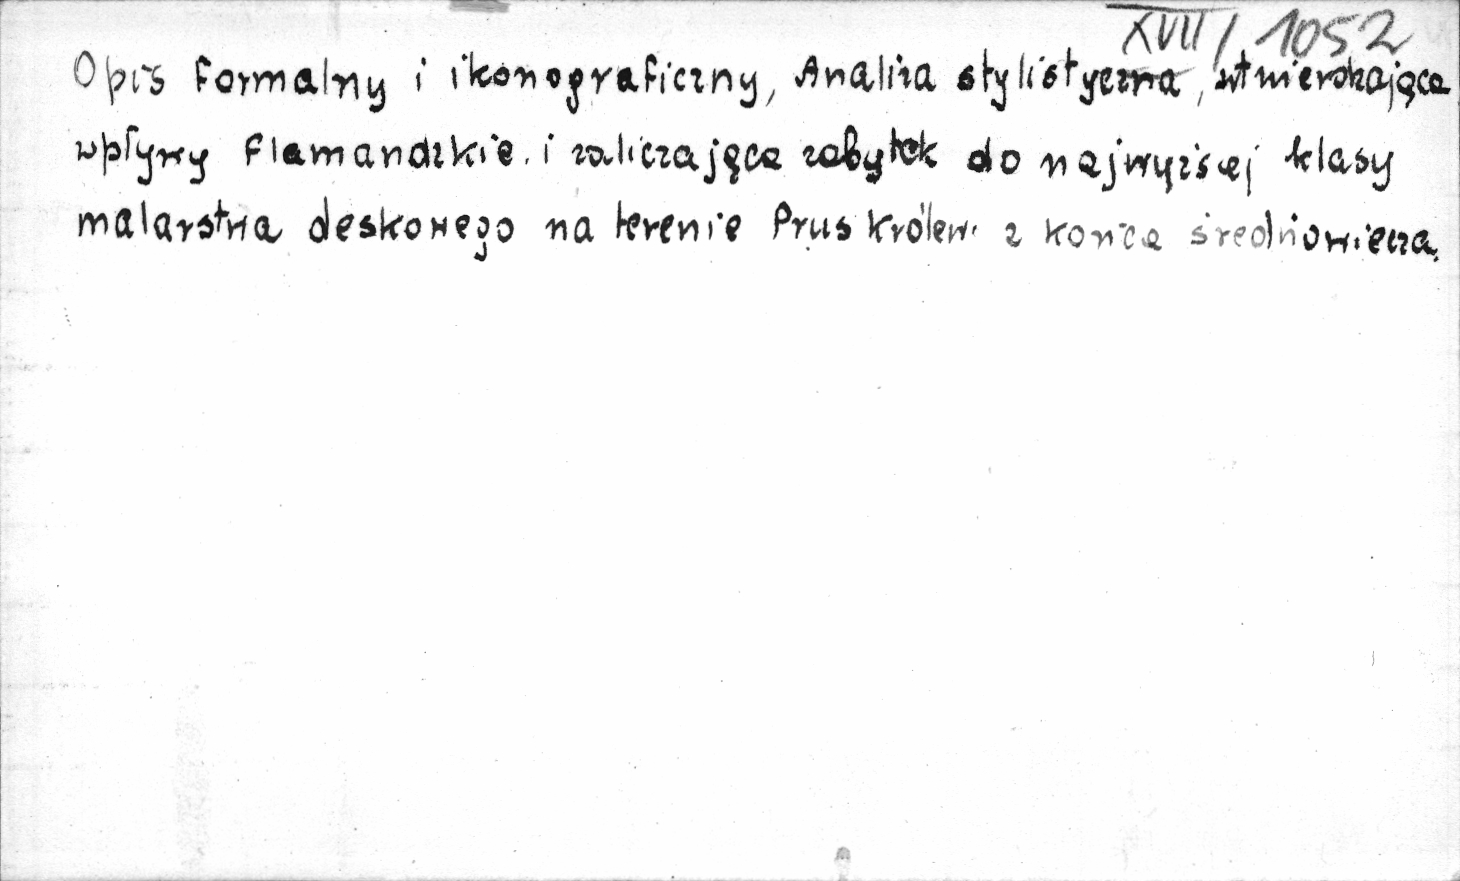 XVII/1052
Opis formalny i ikonograficzny, Analiza stylistyczna, stwierdzająca
wpływy flamandzkie i zaliczająca zabytek do najwyższej klasy
malarstwa deskowego na terenie Prus Królew. z końca średniowiecza.